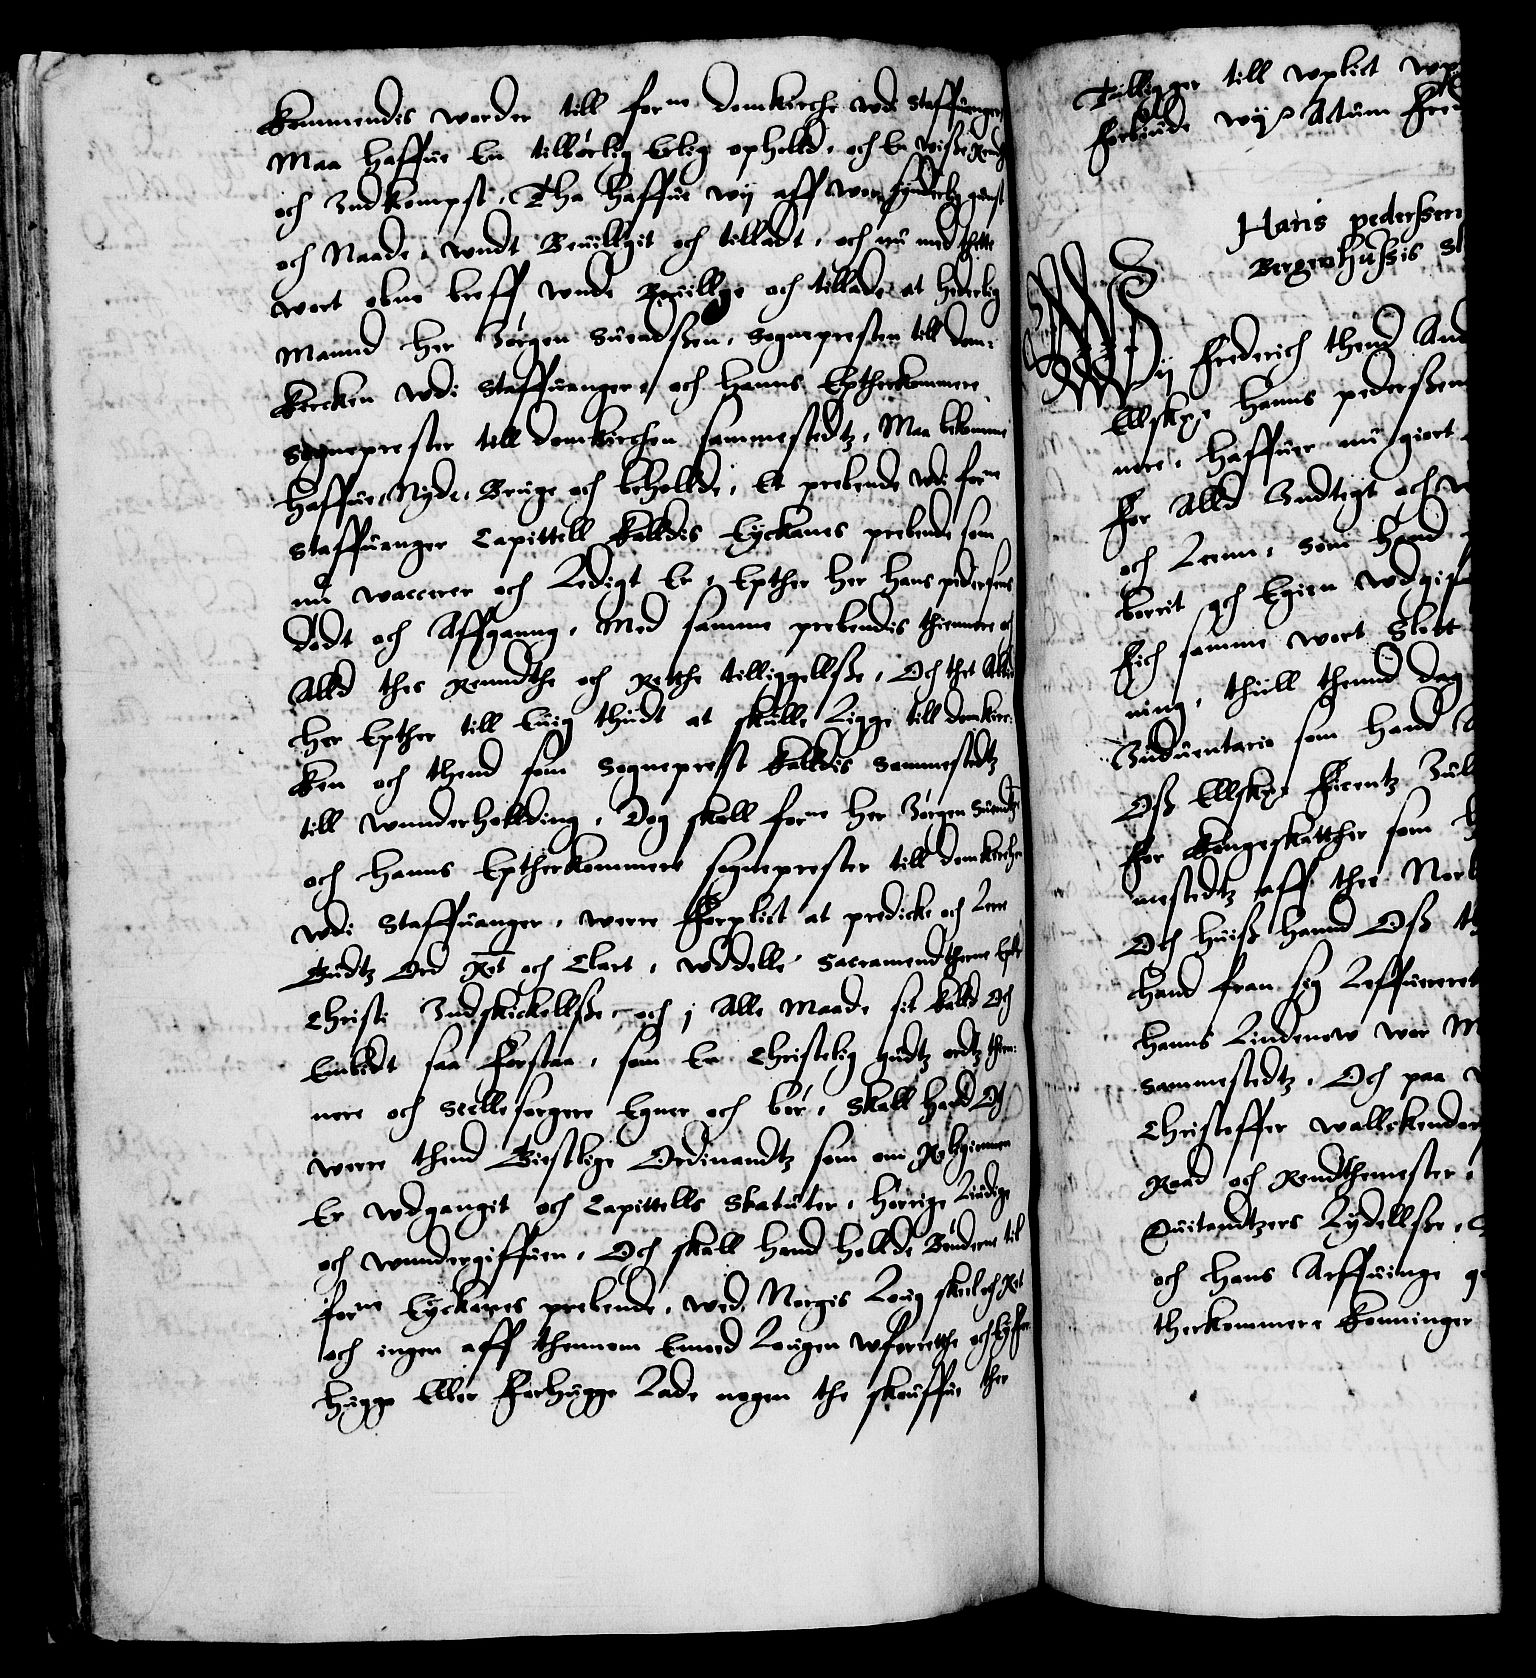 Kommendis worder till forne domkirche wdi Staffuanger
Maa haffue En tilbørlig Erlig ophold, och En wisße Rennt
och Indkompst, Tha haffue wij aff wor synderlig gunst
och Naade, wndt Beuillgit och tilladt, och nu med thette
wort obne breff wnde Beuillge och tillade at hederlig
Mannd her Jørgen Suendsßen, Sognepresten till dom¬
kircken wdi Staffuanger, och hanns Eptherkommere
Sogneprester till domkirchen sammestedtz, Maa bekomme
haffue, Nyde, Bruge och behollde, Et prebende wdi forne
Staffuanger Capittell kalldis Eyckanes prebende som
nu waccerer och Ledigt Er, Epther her Hans pedersens
dødt och Affganng, Med samme prebendis thiennere och
Alld thes Renndthe och Retthe tilliggellsße, Och thet Altid
her Epther till Euig thiidt at skulle Ligge till domkirc¬
ken och thend som Sogneprest kalldis sammestedtz
till wnnderholding, Dog skall forne her Jørgen Suendsßen
och hanns Eptherkommere sogneprester till domkirchen
wdi Staffuanger, were forplict at predicke och Lere
Gudtz Ord Ret och Clart, wddelle Sacramendtherne Epter
Christi Indskickellsße och j Alle Maade sit kalld Och
Embedt saa forstaa, som En Christelig gudtz ordtz thien¬
nere och Siellesørgere Egner och bør, Skall hand Och
were thend Giestlige Ordinandtz som om Religionen
Er wdgangit och Capittells Statuter, hørrige Liidige
och wnndergiffuen, Och skall hand hollde Bønderne til
forne Eyckanes prebende, wed Norgis Loug skiell och Ret
och ingen aff thennom Emod Lougen wforrette och Ey for
hugge Eller forhugge Lade nogen the skouffue ther
Tilligger till wplict
forbiude wij Actum
Hans pedersßen
Bergenhußis Sl
Wij Frederich thend And
Ellskr Hanns pedersßen
nere, haffuer nu giort
for Alld Indtegt och
och Lenn, som hand
borrit och Egien wdgif
fich samme wort Slott
ning, thiill thennd dag
Induentario som hand
Osß Ellskr
for Kongeskatther som
mestedtz aff thee Nor
Och huisß hannd Osß
hand fran sig Leffueret
hanns Lindenow wor M
sammestedtz, Och paa
Christoffer walkendor
Raad och Rendthemester,
Quitandtzers Lydellsße,
och hans Arffuinge
therkommere Konninger